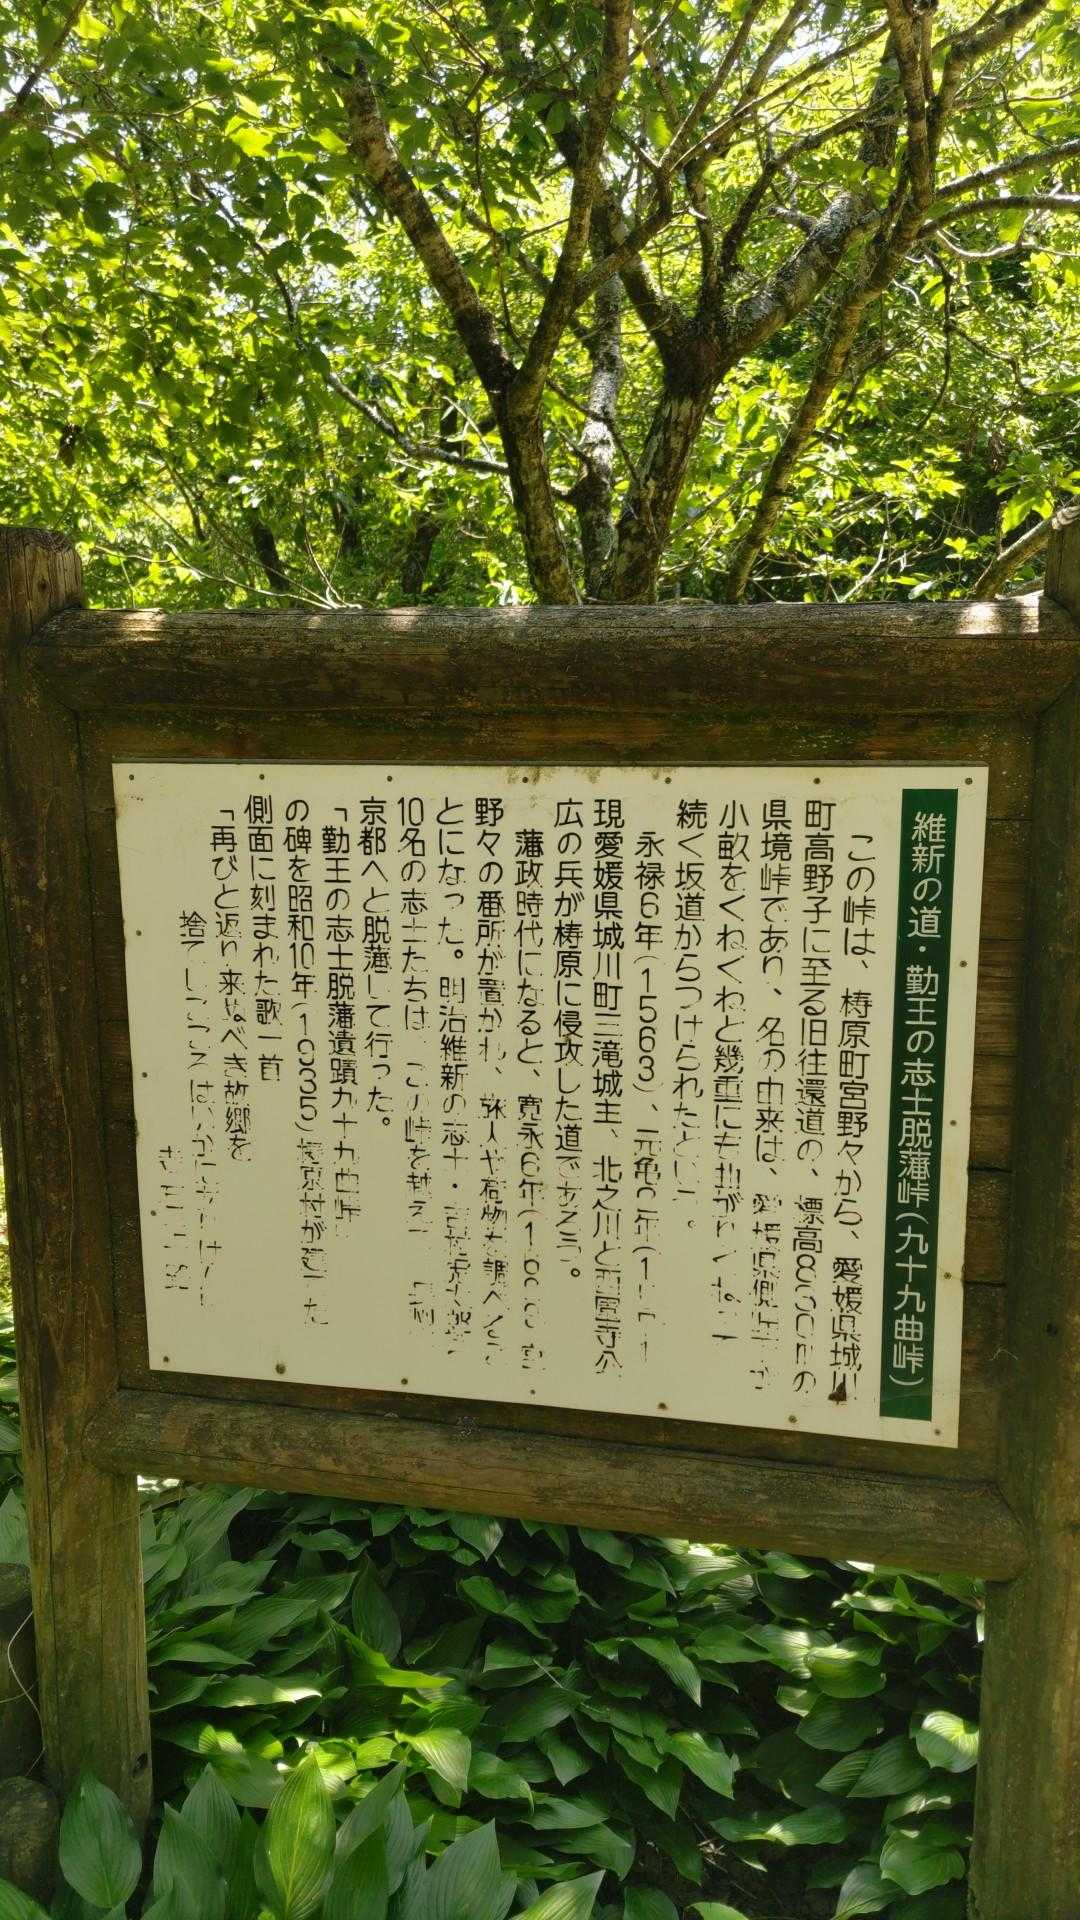 維新の道・勤王の志士脱藩峠(九十九曲峠)
この峠は、梼原町宮野々から、愛媛県城川
町高野子に至る旧往還道の、標高830mの
県境峠であり、名の由来は、愛媛県側
小畝をくねくねと幾重にも曲がりくねって
続く坂道からつけられたという。
永禄6年(1563)、元亀2年(1571
現愛媛県城川町三滝城主、北之川と西園寺公
広の兵が梼原に侵攻した道であろう。
藩政時代になると、寛永6年(
野々の番所が置かれ、旅人や荷物を調べるこ
とになった。明治維新の志士・吉村虎太郎
10名の志士たちは、この峠を越えて
京都へと脱藩して行った。
「勤王の志士脱藩遺蹟九十九曲峠
の碑を昭和10年(1935)梼原村が建てた
側面に刻まれた歌一首
「再びと返り来ぬべき故郷を
捨てしこころはいか